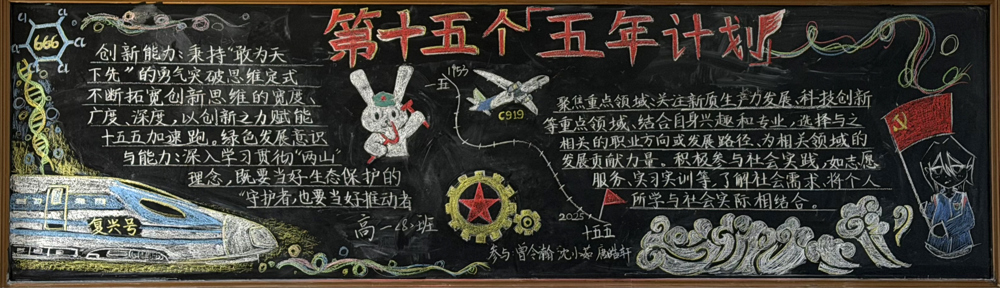 第十五个「五年计划」
CL
666
CL
CL
CL
创新能力：秉持“敢为天
下先”的勇气突破思维定式
不断拓宽创新思维的宽度、
广度、深度，以创新之力赋能
十五五加速跑。绿色发展意识
与能力：深入学习贯彻“两山”
理念，既要当好生态保护的
“守护者，也要当好推动者
复兴号
高一(8)班
1953
一五
C919
2025
十五五
聚焦重点领域：关注新质生产力发展、科技创新
等重点领域、结合自身兴趣和专业，选择与之
相关的职业方向或发展路径、为相关领域的
发展贡献力量。积极参与社会实践，如志愿
服务、实习实训等，了解社会需求、将个人
所学与社会实际相结合。
参与